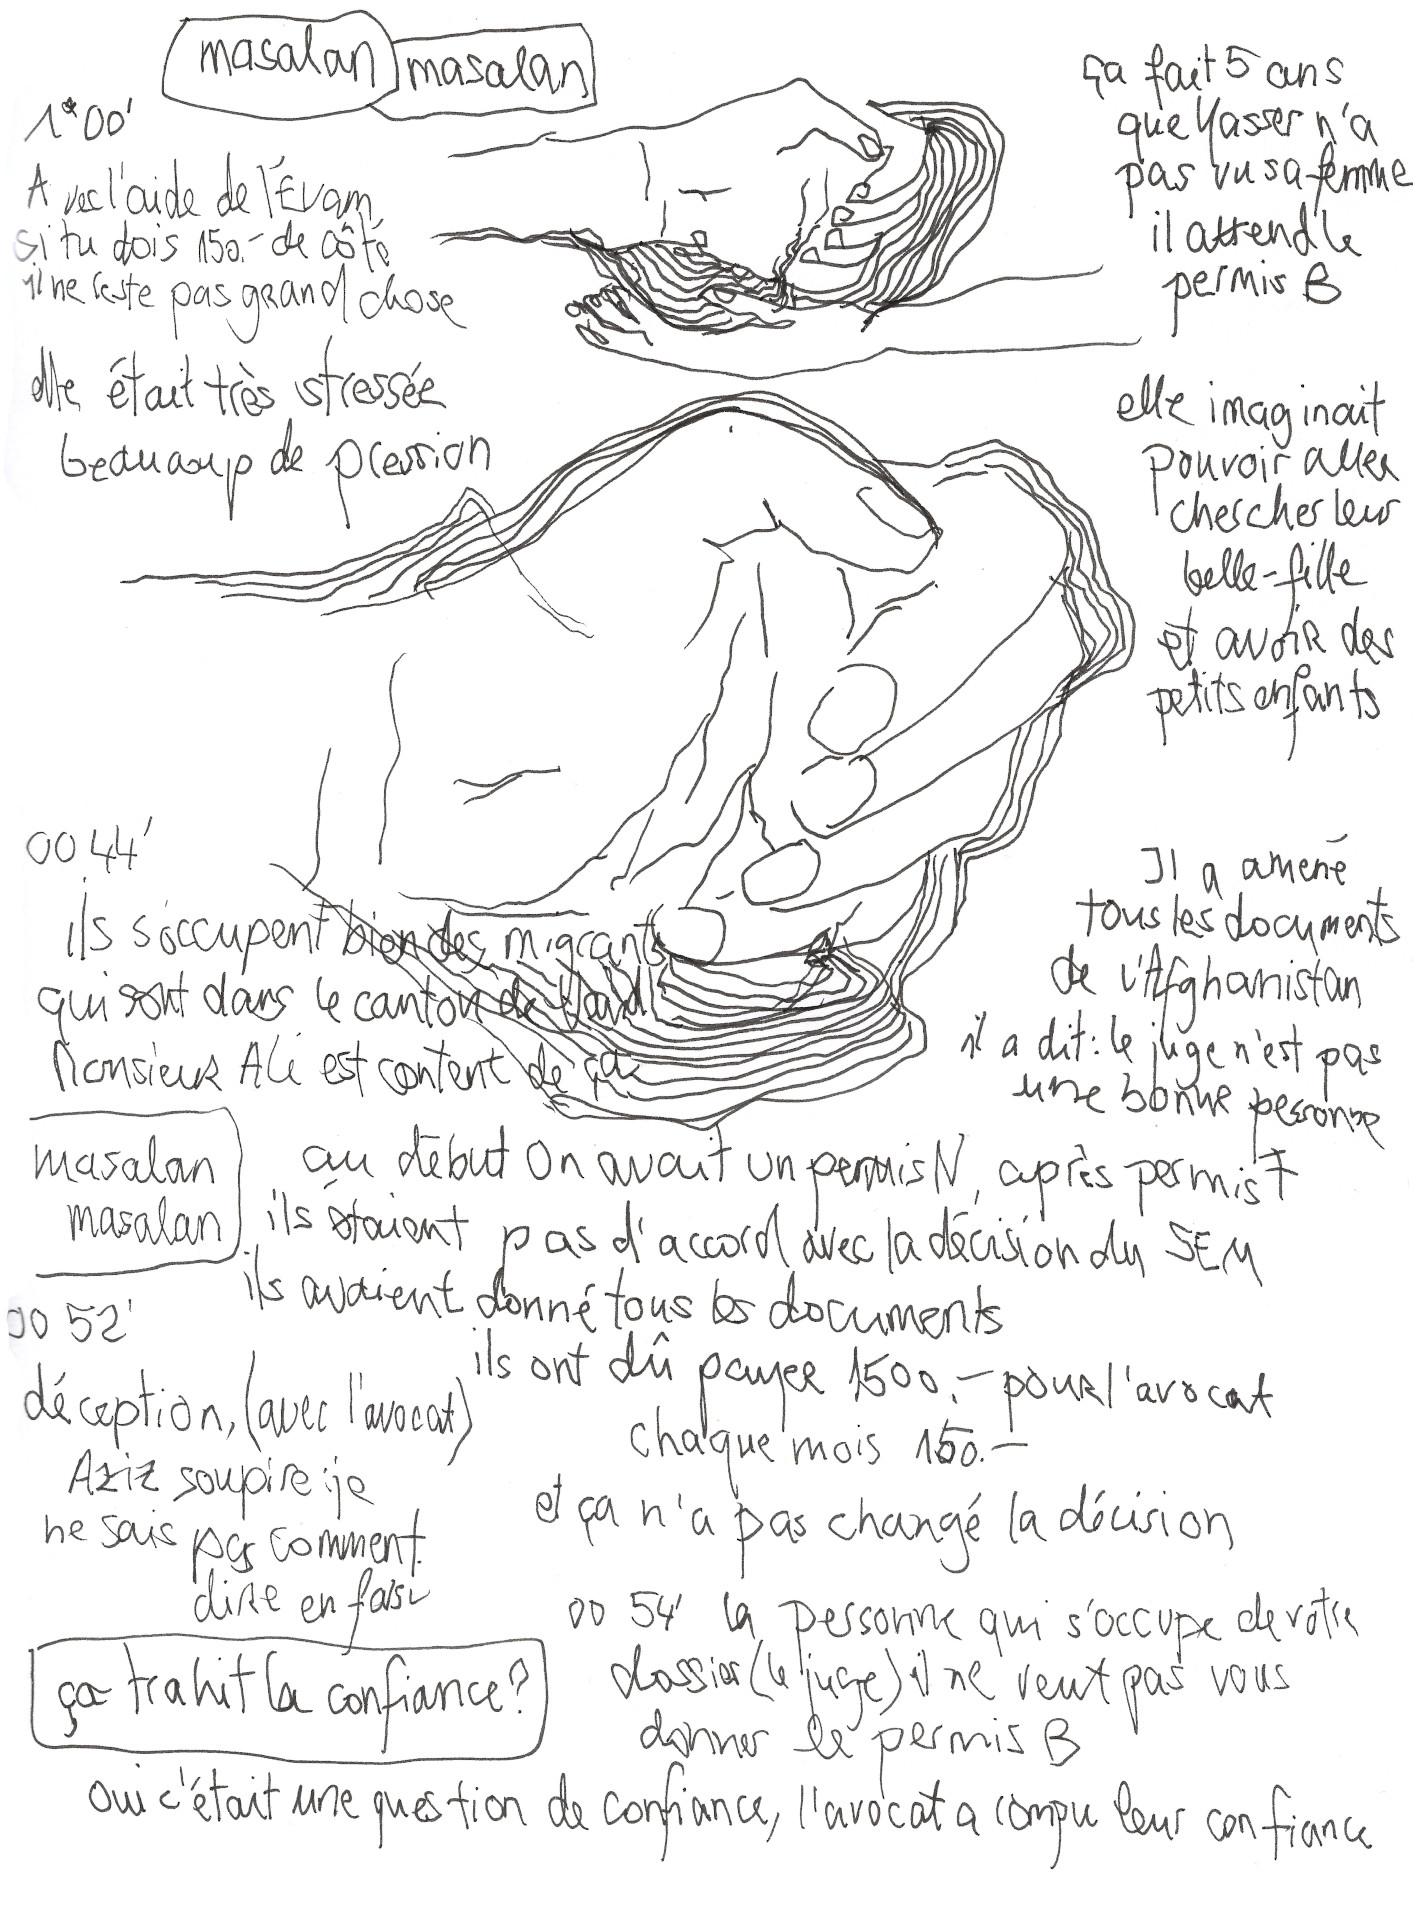 masalan masalan
1°00'
Avec l'aide de l'Evam
si tu dois 150.- de côté
il ne reste pas grand chose
elle était très stressée
beaucoup de pression
ça fait 5 ans
que Yasser n'a
pas vu sa femme
il attend le
permis B
elle imaginait
pouvoir aller
chercher leur
belle-fille
et avoir des
petits enfants
00 44'
ils s'occupent bien des migrants
qui sont dans le canton de Vaud
Monsieur Ali est content de ça
Il a amené
tous les documents
de l'Afghanistan
il a dit: le juge n'est pas
une bonne personne
masalan
masalan
au début on avait un permis N, après permis F
ils étaient pas d'accord avec la décision du SEM
ils avaient donné tous les documents
ils ont dû payer 1500.- pour l'avocat
chaque mois 150.-
et ça n'a pas changé la décision
00 52'
déception, (avec l'avocat)
Aziz soupire: je
ne sais pas comment
dire en farsi
ça trahit la confiance?
00 54' la personne qui s'occupe de votre
dossier (le juge) il ne veut pas vous
donner le permis B
oui c'était une question de confiance, l'avocat a rompu leur confiance